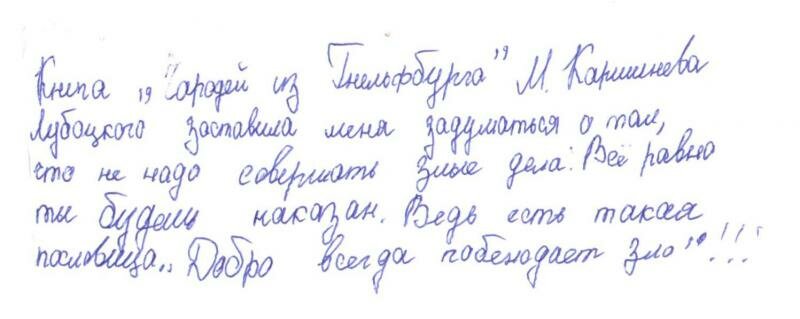 Книга „Чародей из Гнельфбурга” М. Каришнева
Лубоцкого заставила меня задуматься о том,
что не надо совершать злые дела. Всё равно
ты будешь наказан. Ведь есть такая
пословица „Добро всегда побенодает зло”!!!